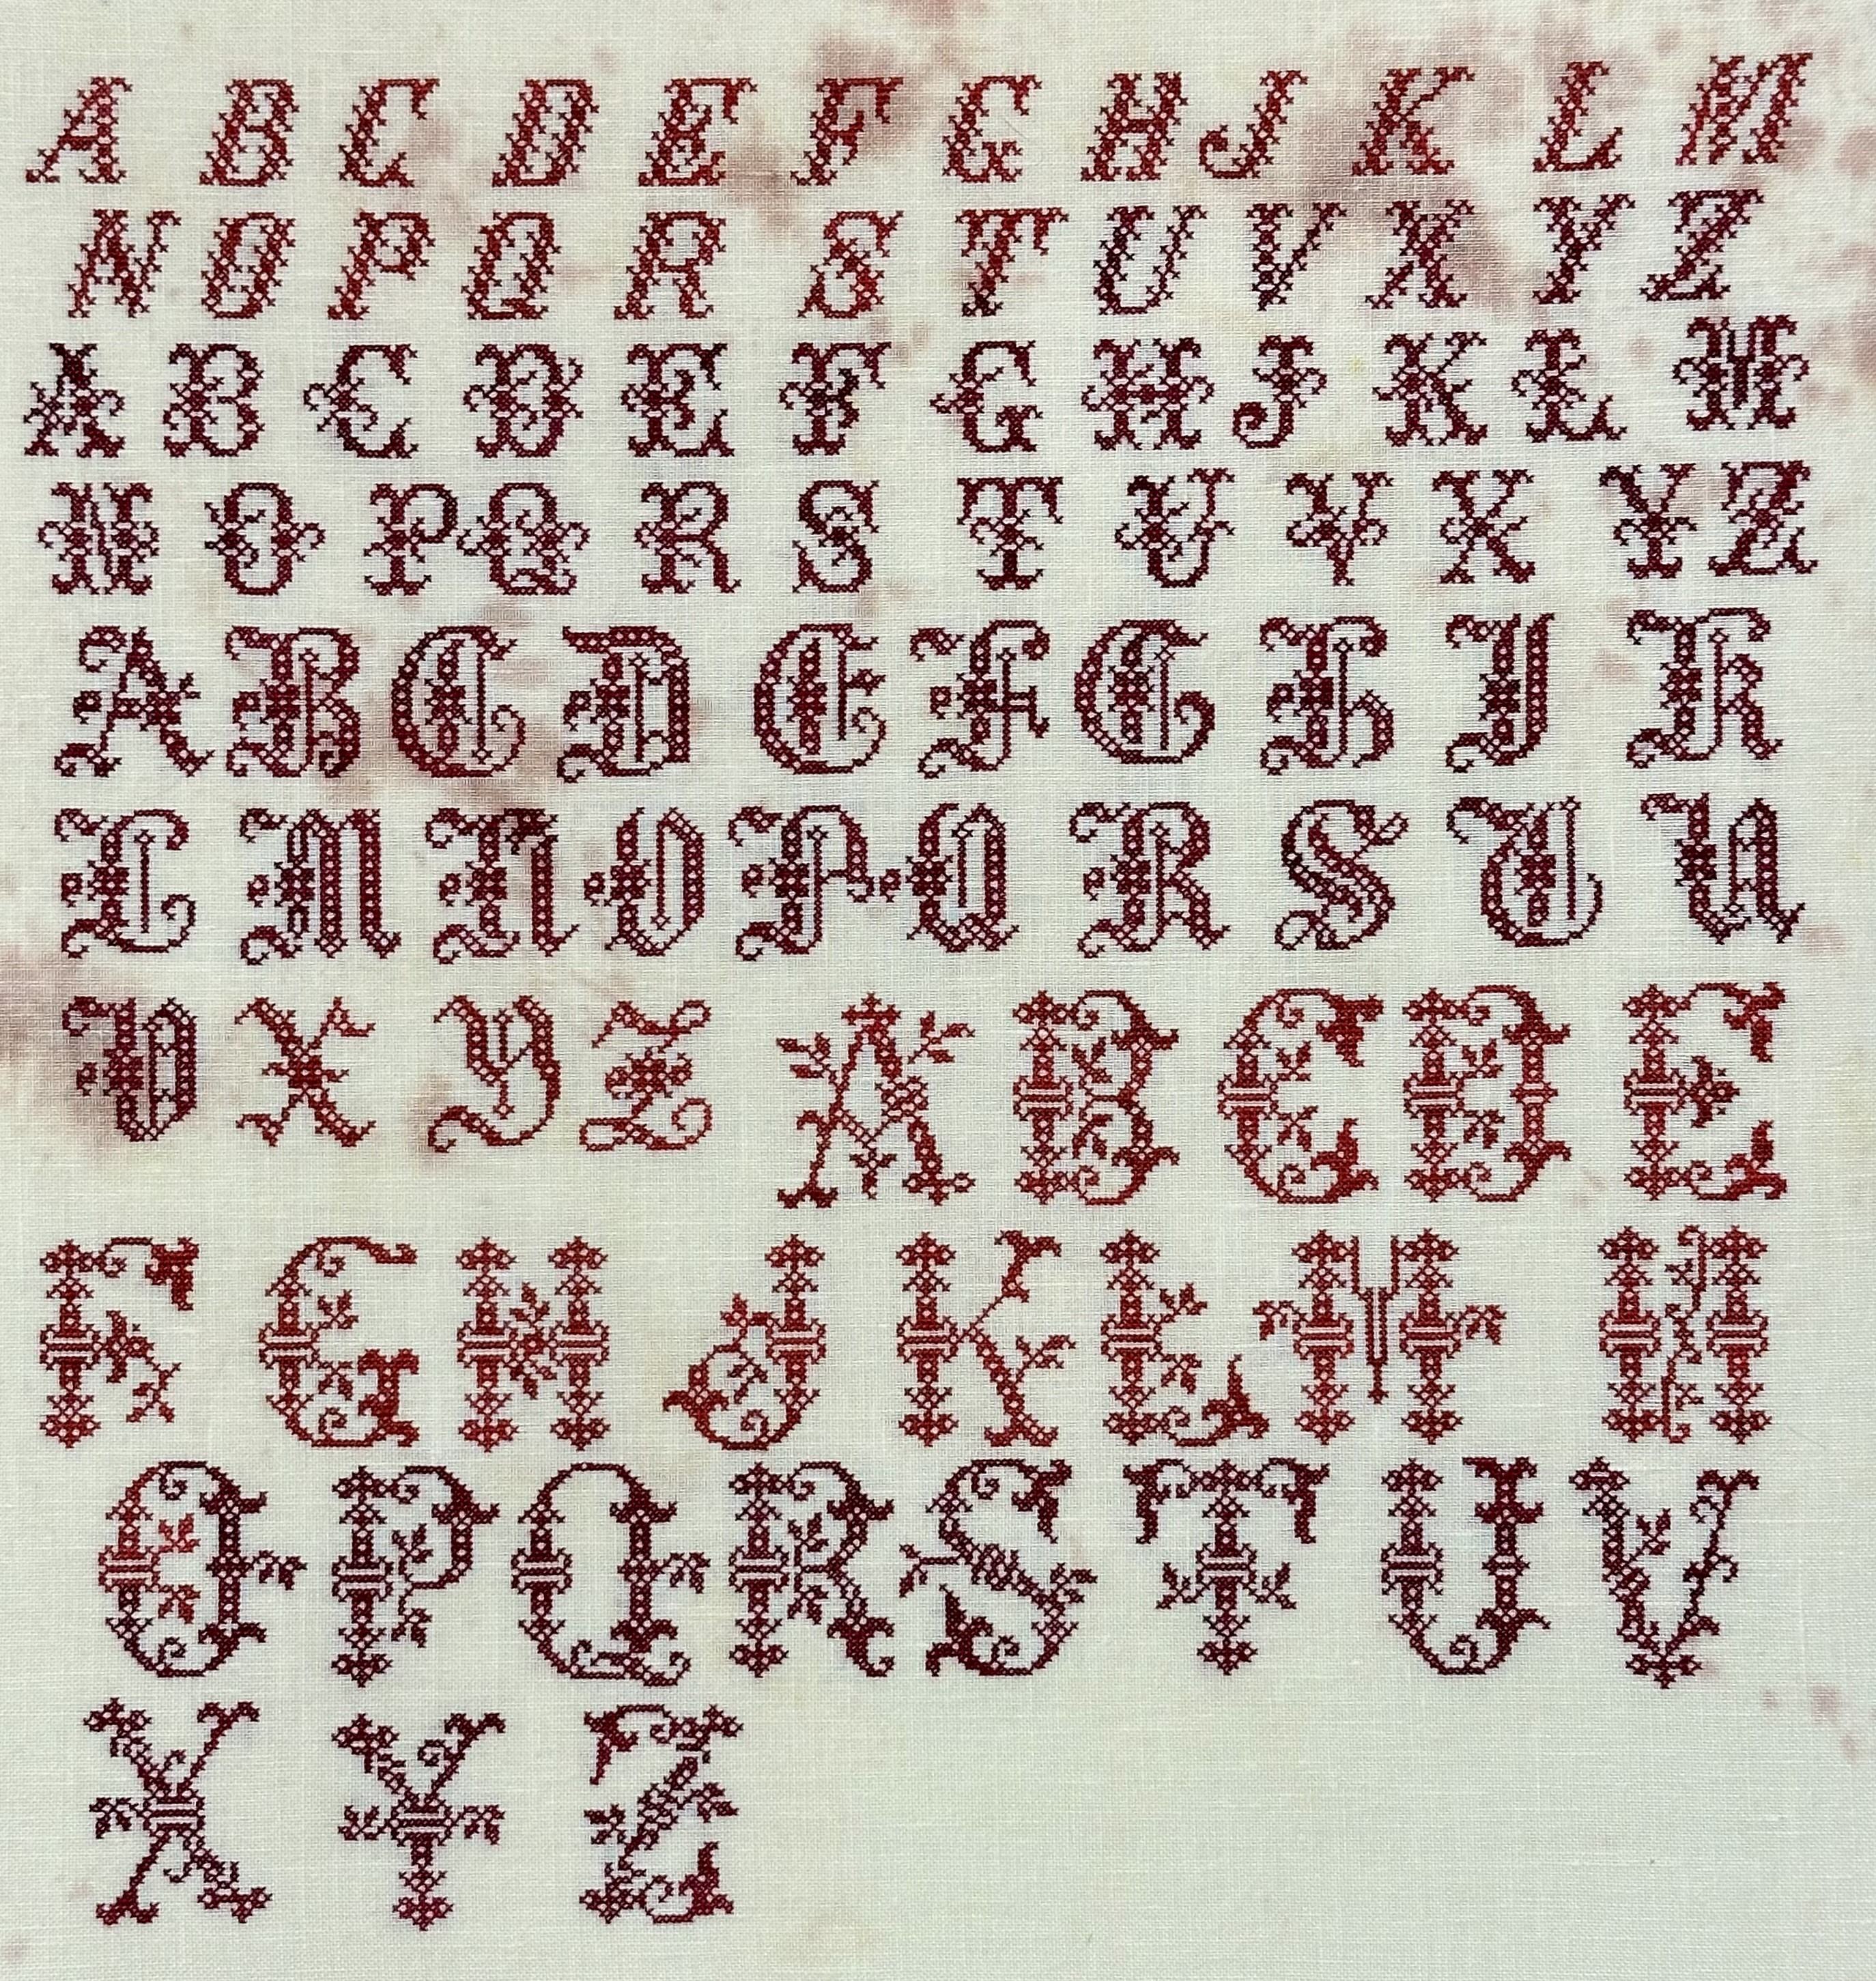 A B C D E F G H J K L M
N O P Q R S T U V X Y Z
A B C D E F G H J K L M
N O P Q R S T U V X Y Z
A B C D E F G H J K
L M N O P Q R S T U
V X Y Z A B C D E
F G H J K L M N
O P Q R S T U V
X Y Z